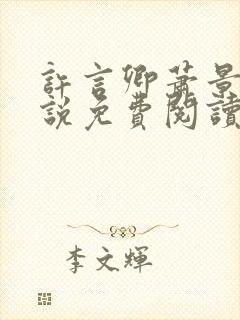 許言卿蕭景
說免費閱讀
李文輝